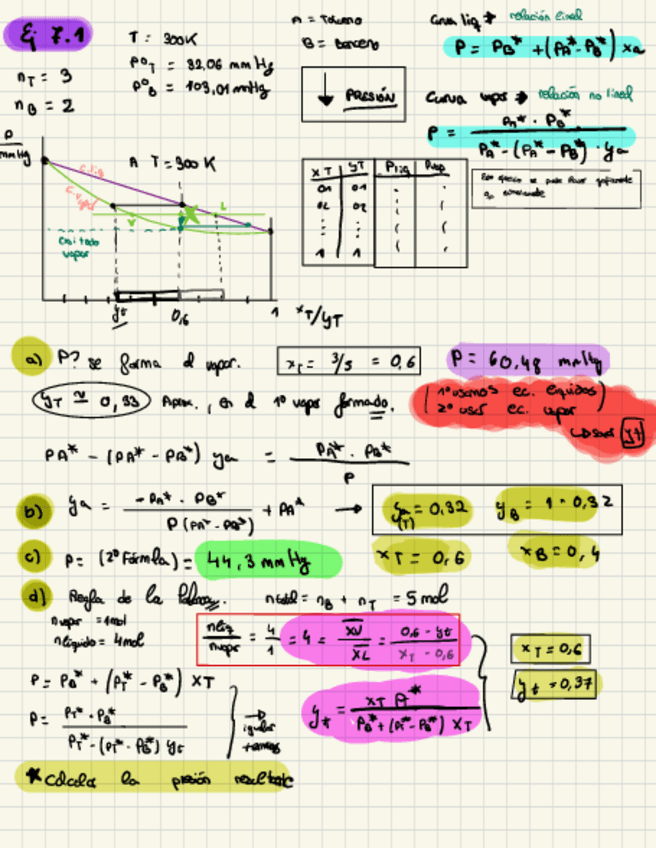 Ej 7.1
T = 300K
P°T = 32,06 mmHg
P°B = 103,01 mmHg
nT = 3
nB = 2
A = Tolueno
B = Benceno
↓ PRESIÓN
Curva liq → relación lineal
P = PB* + (PA* - PB*) xa
Curva vapor → relación no lineal
P = PA* · PB* / PA* - (PA* - PB*) · ya
P
mmHg
A T = 300 K
c. liq
c. vapor
V
L
Casi todo
vapor
yt
0,6
1
xT/yT
xT yT Pliq Pvap
0,1 0,1
0,2 0,2
1 1
a) P? se forma el vapor.
xT = 3/5 = 0,6
P = 60,48 mmHg
yT ≃ 0,33 Aprox., en el 1º vapor formado.
(1º usamos ec. líquidos
2º usar ec. vapor)
↳ Sacar yt
PA* - (PA* - PB*) ya = PA* · PB* / P
b) ya = -PA* · PB* / P (PA* - PB*) + PA* →
ya (T) = 0,32
yB = 1 - 0,32
c) P = (2º Fórmula) = 44,3 mmHg
xT = 0,6
xB = 0,4
d) Regla de la Palanca. ntotal = nB + nT = 5 mol
nvapor = 1mol
nlíquido = 4mol
nliq / nvapor = 4/1 = 4 = XV / XL = 0,6 - yt / xT - 0,6
xT = 0,6
yt = 0,37
P = PB* + (PT* - PB*) XT
P = PT* · PB* / PT* - (PT* - PB*) yt
→ igualar
yt = XT PT* / PB* + (PT* - PB*) XT
* Calcula la presión resultante